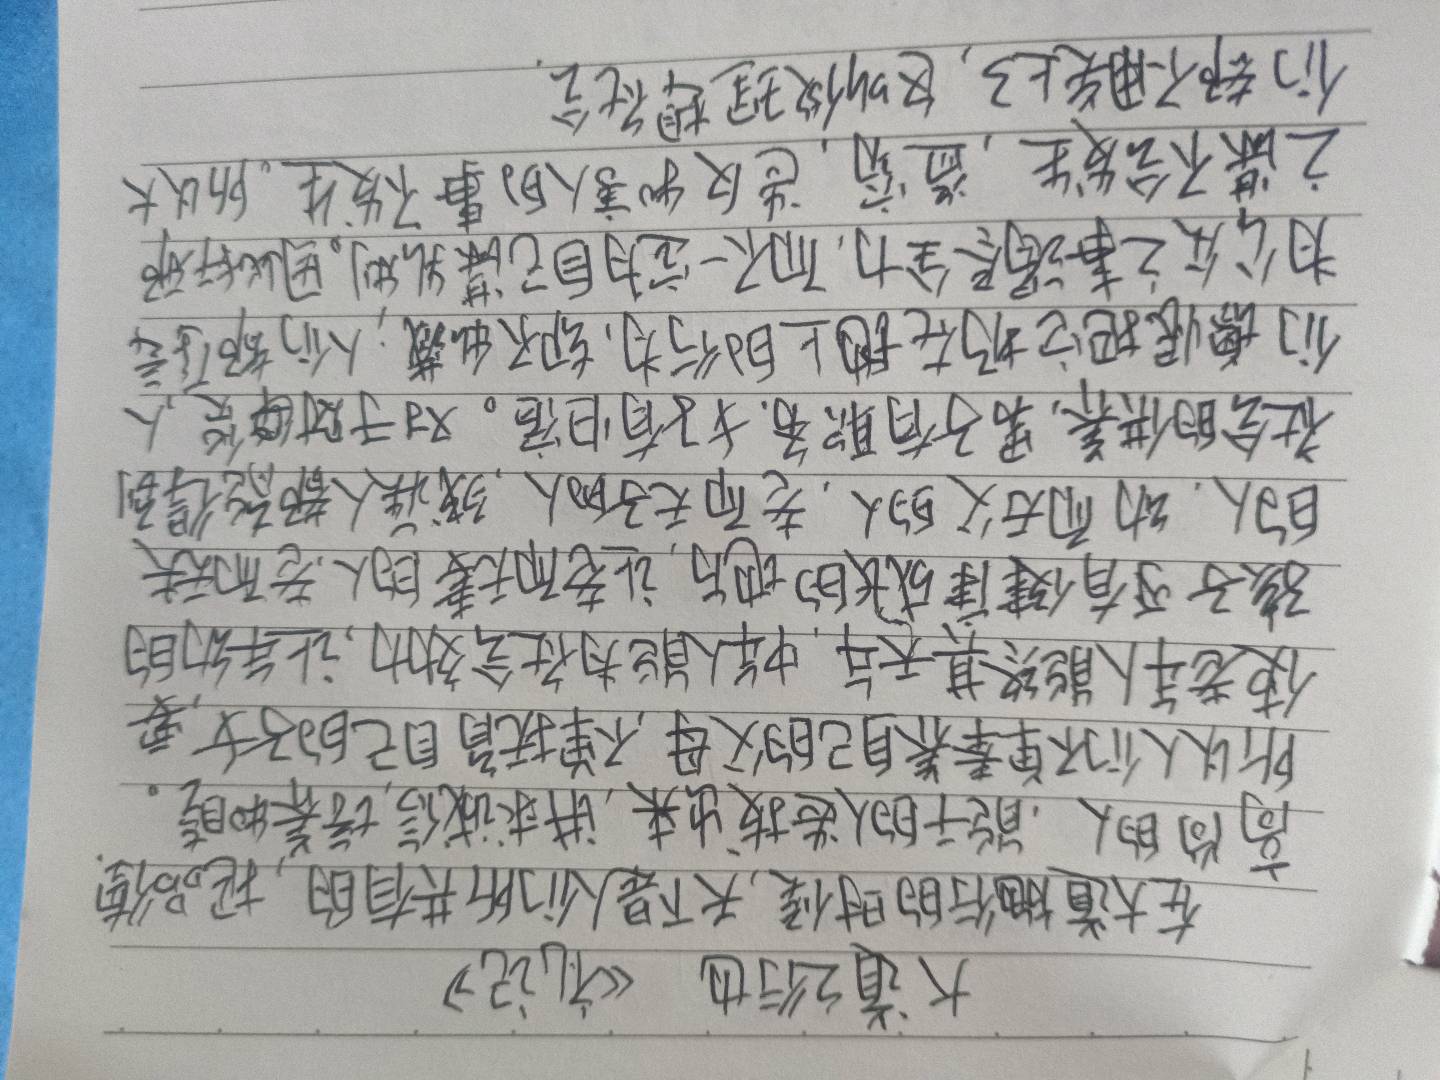 大道之行也 《礼记》
在大道施行的时候，天下是人们所共有的，把品德
高尚的人，能干的人选拔出来，讲求诚信，培养和睦。
所以人们不单奉养自己的父母，不单抚育自己的子女，要
使老年人能终其天年，中年人能为社会效力，让年幼的
孩子可有健康成长的地方，让老而无妻的人，老而无夫
的人，幼而无父的人，老而无子的人，残疾人都能得到
社会的供养，男子有职务，女子有归宿。对于财货，人
们憎恨把它扔在地上的行为，却不私藏；人们都愿意
为公众之事竭尽全力，而不一定为自己谋私利。因此奸邪
之谋不会发生，盗窃，造反和害人的事不发生。所以大
们都不用关上了，这叫做理想社会